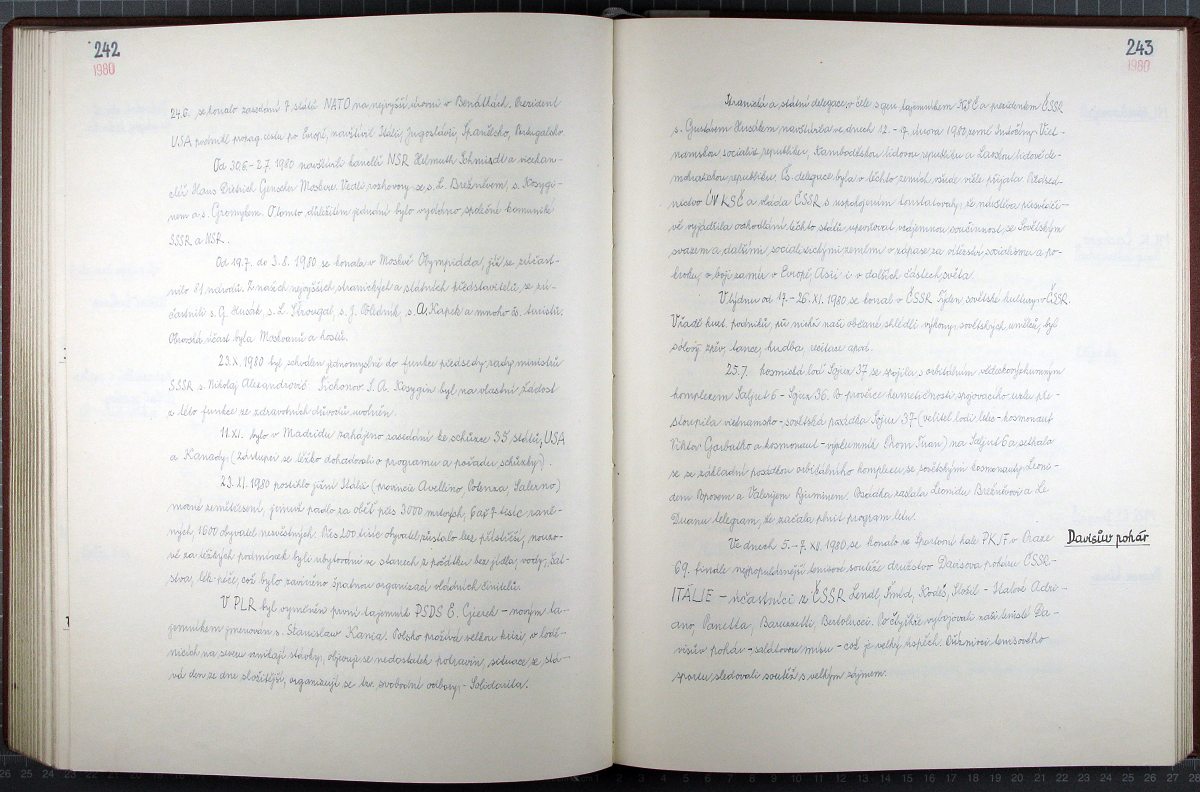 242
1980
24.6. se konalo zasedání 7 států NATO na nejvyšší úrovni v Benátkách. Prezident
USA podnikl propag. cestu po Evropě, navštívil Itálii, Jugoslávii, Španělsko, Portugalsko
Od 30.6.-2.7. 1980 navštívili kancléř NSR Helmuth Schmidt a vicekan-
cléř Hans Dietrich Genscher Moskvu. Vedli rozhovory se s. L. Brežněvem, s. Kosygi-
nem a s. Gromykem. O tomto důležitém jednání bylo vydáno společné komuniké
SSSR a NSR.
Od 19.7. do 3.8. 1980 se konala v Moskvě Olympiáda, jíž se zúčast-
nilo 81 národů. Z našich nejvyšších stranických a státních představitelů se zú-
častnili s. G. Husák, s. L. Štrougal, s. J. s. A. Kapek a mnoho čs. turistů.
Obrovská účast byla Moskvanů a hostů.
23.X. 1980 byl schválen jednomyslně do funkce předsedy rady ministrů
SSSR s. Nikolaj Alexandrovič Tichonov. S. A. Kosygin byl na vlastní žádost
z této funkce ze zdravotních důvodů uvolněn.
11.XI. bylo v Madridu zahájeno zasedání ke schůzce 35 států, USA
a Kanady, (zástupci se těžko dohadovali o programu a pořadu schůzky).
23.XI. 1980 postihlo jižní Itálii (provincie Avellino, Potenza, Salerno)
mocné zemětřesení, jemuž padlo za oběť přes 3000 mrtvých, 6 až 7 tisíc raně-
ných, 1600 obyvatel nezvěstných. Přes 200 tisíc obyvatel zůstalo bez přístřeší, nouzo-
vě za těžkých podmínek byli ubytováni ve stanech z počátku bez jídla, vody, šat-
stva, lék. péče, což bylo zaviněno špatnou organizací vládních činitelů.
V PLR byl vyměněn první tajemník PSDS E. Gierek - novým ta-
jemníkem jmenován s. Stanislaw Kania. Polsko prožívá velkou krizi, v lodě-
nicích na severu vznikají stávky, objevuje se nedostatek potravin, situace se stá-
vá den ze dne složitější, organizují se tzv. svobodné odbory - Solidarita.
243
1980
Stranická a státní delegace v čele s gen. tajemníkem KSČ a prezidentem ČSSR
s. Gustávem Husákem navštívila ve dnech 12. - 17. února 1980 země Indočíny - Viet-
namskou socialist. republiku, Kambodžskou lidovou republiku a Laoskou lidově de-
mokratickou republiku. Čs. delegace byla v těchto zemích všude vřele přijata. Předsed-
nictvo ÚV KSČ a vláda ČSSR s uspokojením konstatovaly, že návštěva přesvědči-
vě vyjádřila odhodlání těchto států upevňovat vzájemnou součinnost se Sovětským
svazem a dalšími socialistickými zeměmi v zápase za vítězství socialismu a po-
kroku, v boji za mír v Evropě, Asii i v dalších částech světa.
V týdnu od 17. - 26.XI. 1980 se konal v ČSSR Týden sovětské kultury v ČSSR.
V řadě kult. podniků, při nichž naši občané shlédli výkony sovětských umělců, byl
sólový zpěv, tance, hudba, recitace apod.
25.7. kosmická loď Sojuz 37 se spojila s orbitálním vědeckovýzkumným
komplexem Saljut 6 - Sojuz 36. Po prověrce hermetičnosti spojovacího uzlu pře-
stoupila vietnamsko - sovětská posádka Sojuz 37 - (velitel lodi letec - kosmonaut
Viktor Gorbatko a kosmonaut - výzkumník Phom Tuan) na Saljut 6 a setkala
se se základní posádkou orbitálního komplexu se sovětskými kosmonauty Leoni-
dem Popovem a Valerijem Rjuminem. Posádka zaslala Leonidu Brežněvovi a Le
Duanu telegram, že začala plnit program letu.
Ve dnech 5. - 7. XII. 1980 se konalo ve Sportovní hale PKJF v Praze
Davisův pohár
69. finále nejpopulárnější tenisové soutěže družstev Davisova poháru ČSSR -
ITÁLIE - účastníci z ČSSR Lendl, Šmíd, Kodeš, Složil - Italové Adri-
ano, Panatta, Barazzutti, Bertolucci. Po čtyřhře vybojovali naši tenisté Da-
visův pohár - salátovou mísu - což je velký úspěch. Příznivci tenisového
sportu sledovali soutěž s velkým zájmem.